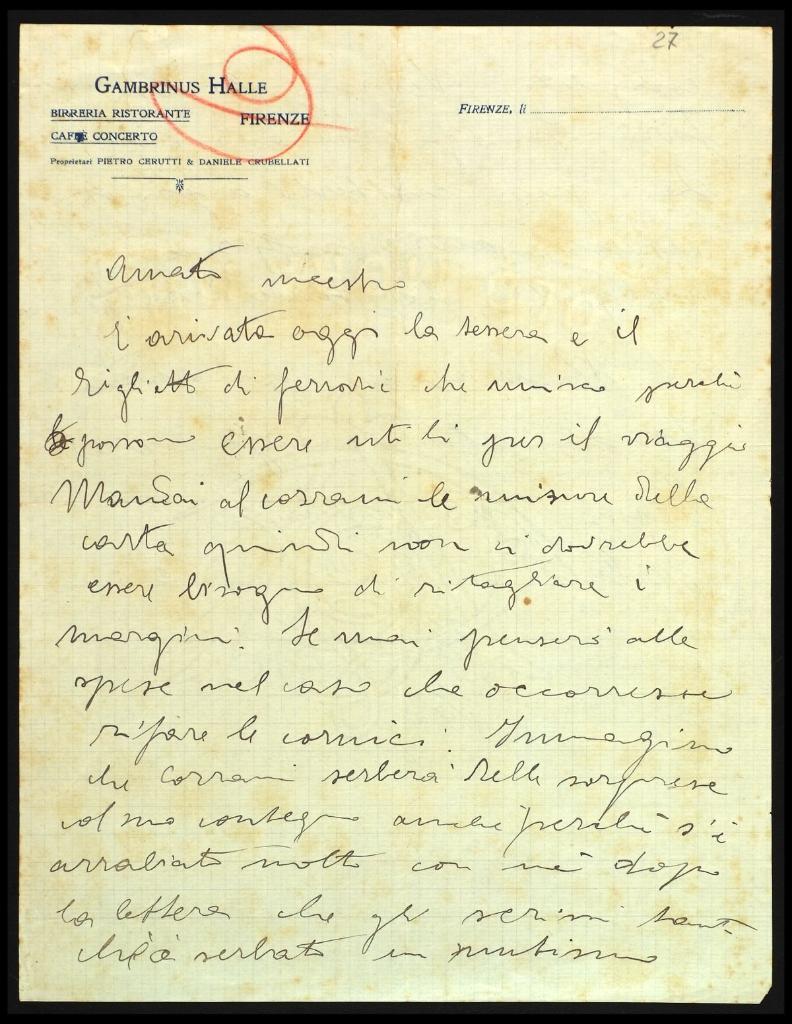 27
GAMBRINUS HALLE
BIRRERIA RISTORANTE
FIRENZE
CAFFÈ CONCERTO
FIRENZE, li
Proprietari PIETRO CERUTTI & DANIELE CRUBELLATI
Amato maestro
È arivata oggi la tessera e il
biglietto di ferrovie che unisco perchè
possono essere utili per il viaggio
Mandai al corrani le misure della
carta quindi non ci dovrebbe
essere bisogno di ritagliare i
margini. Se mai penserò alle
spese nel caso che occorresse
rifare le cornici. Immagino
che Corrani serberà delle sorprese
col suo contegno anche perchè s'è
arrabiato molto con me dopo
la lettera che gli scrissi tant
ch'è serbato un mutismo